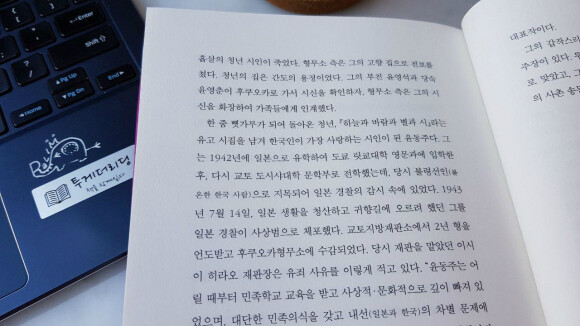 흡살의 청년 시인이 죽었다. 형무소 측은 그의 고향 집으로 전보를
쳤다. 청년의 집은 간도의 용정이었다. 그의 부친 윤영석과 당숙
윤영춘이 후쿠오카로 가서 시신을 확인하자, 형무소 측은 그의 시
신을 화장하여 가족들에게 인계했다.
한 줌 뼛가루가 되어 돌아온 청년, 『하늘과 바람과 별과 시』라는
유고 시집을 남겨 한국인이 가장 사랑하는 시인이 된 윤동주다. 그
는 1942년에 일본으로 유학하여 도쿄 릿쿄대학 영문과에 입학한
후, 다시 교토 도시샤대학 문학부로 전학했는데, 당시 불령선인(불
온한 한국 사람)으로 지목되어 일본 경찰의 감시 속에 있었다. 1943
년 7월 14일, 일본 생활을 청산하고 귀향길에 오르려 했던 그를
일본 경찰이 사상범으로 체포했다. 교토지방재판소에서 2년 형을
언도받고 후쿠오카형무소에 수감되었다. 당시 재판을 맡았던 이시
이 히라오 재판장은 유죄 사유를 이렇게 적고 있다. “윤동주는 어
릴 때부터 민족학교 교육을 받고 사상적·문화적으로 깊이 빠져 있
었으며, 대단한 민족의식을 갖고 내선(일본과 한국)의 차별 문제에
대표작이다.
그의 갑작스러
주장이 있다.
로 맞았고,
의 사촌 송몽
Shift
PgUp
PgDn
End
투게더리딩